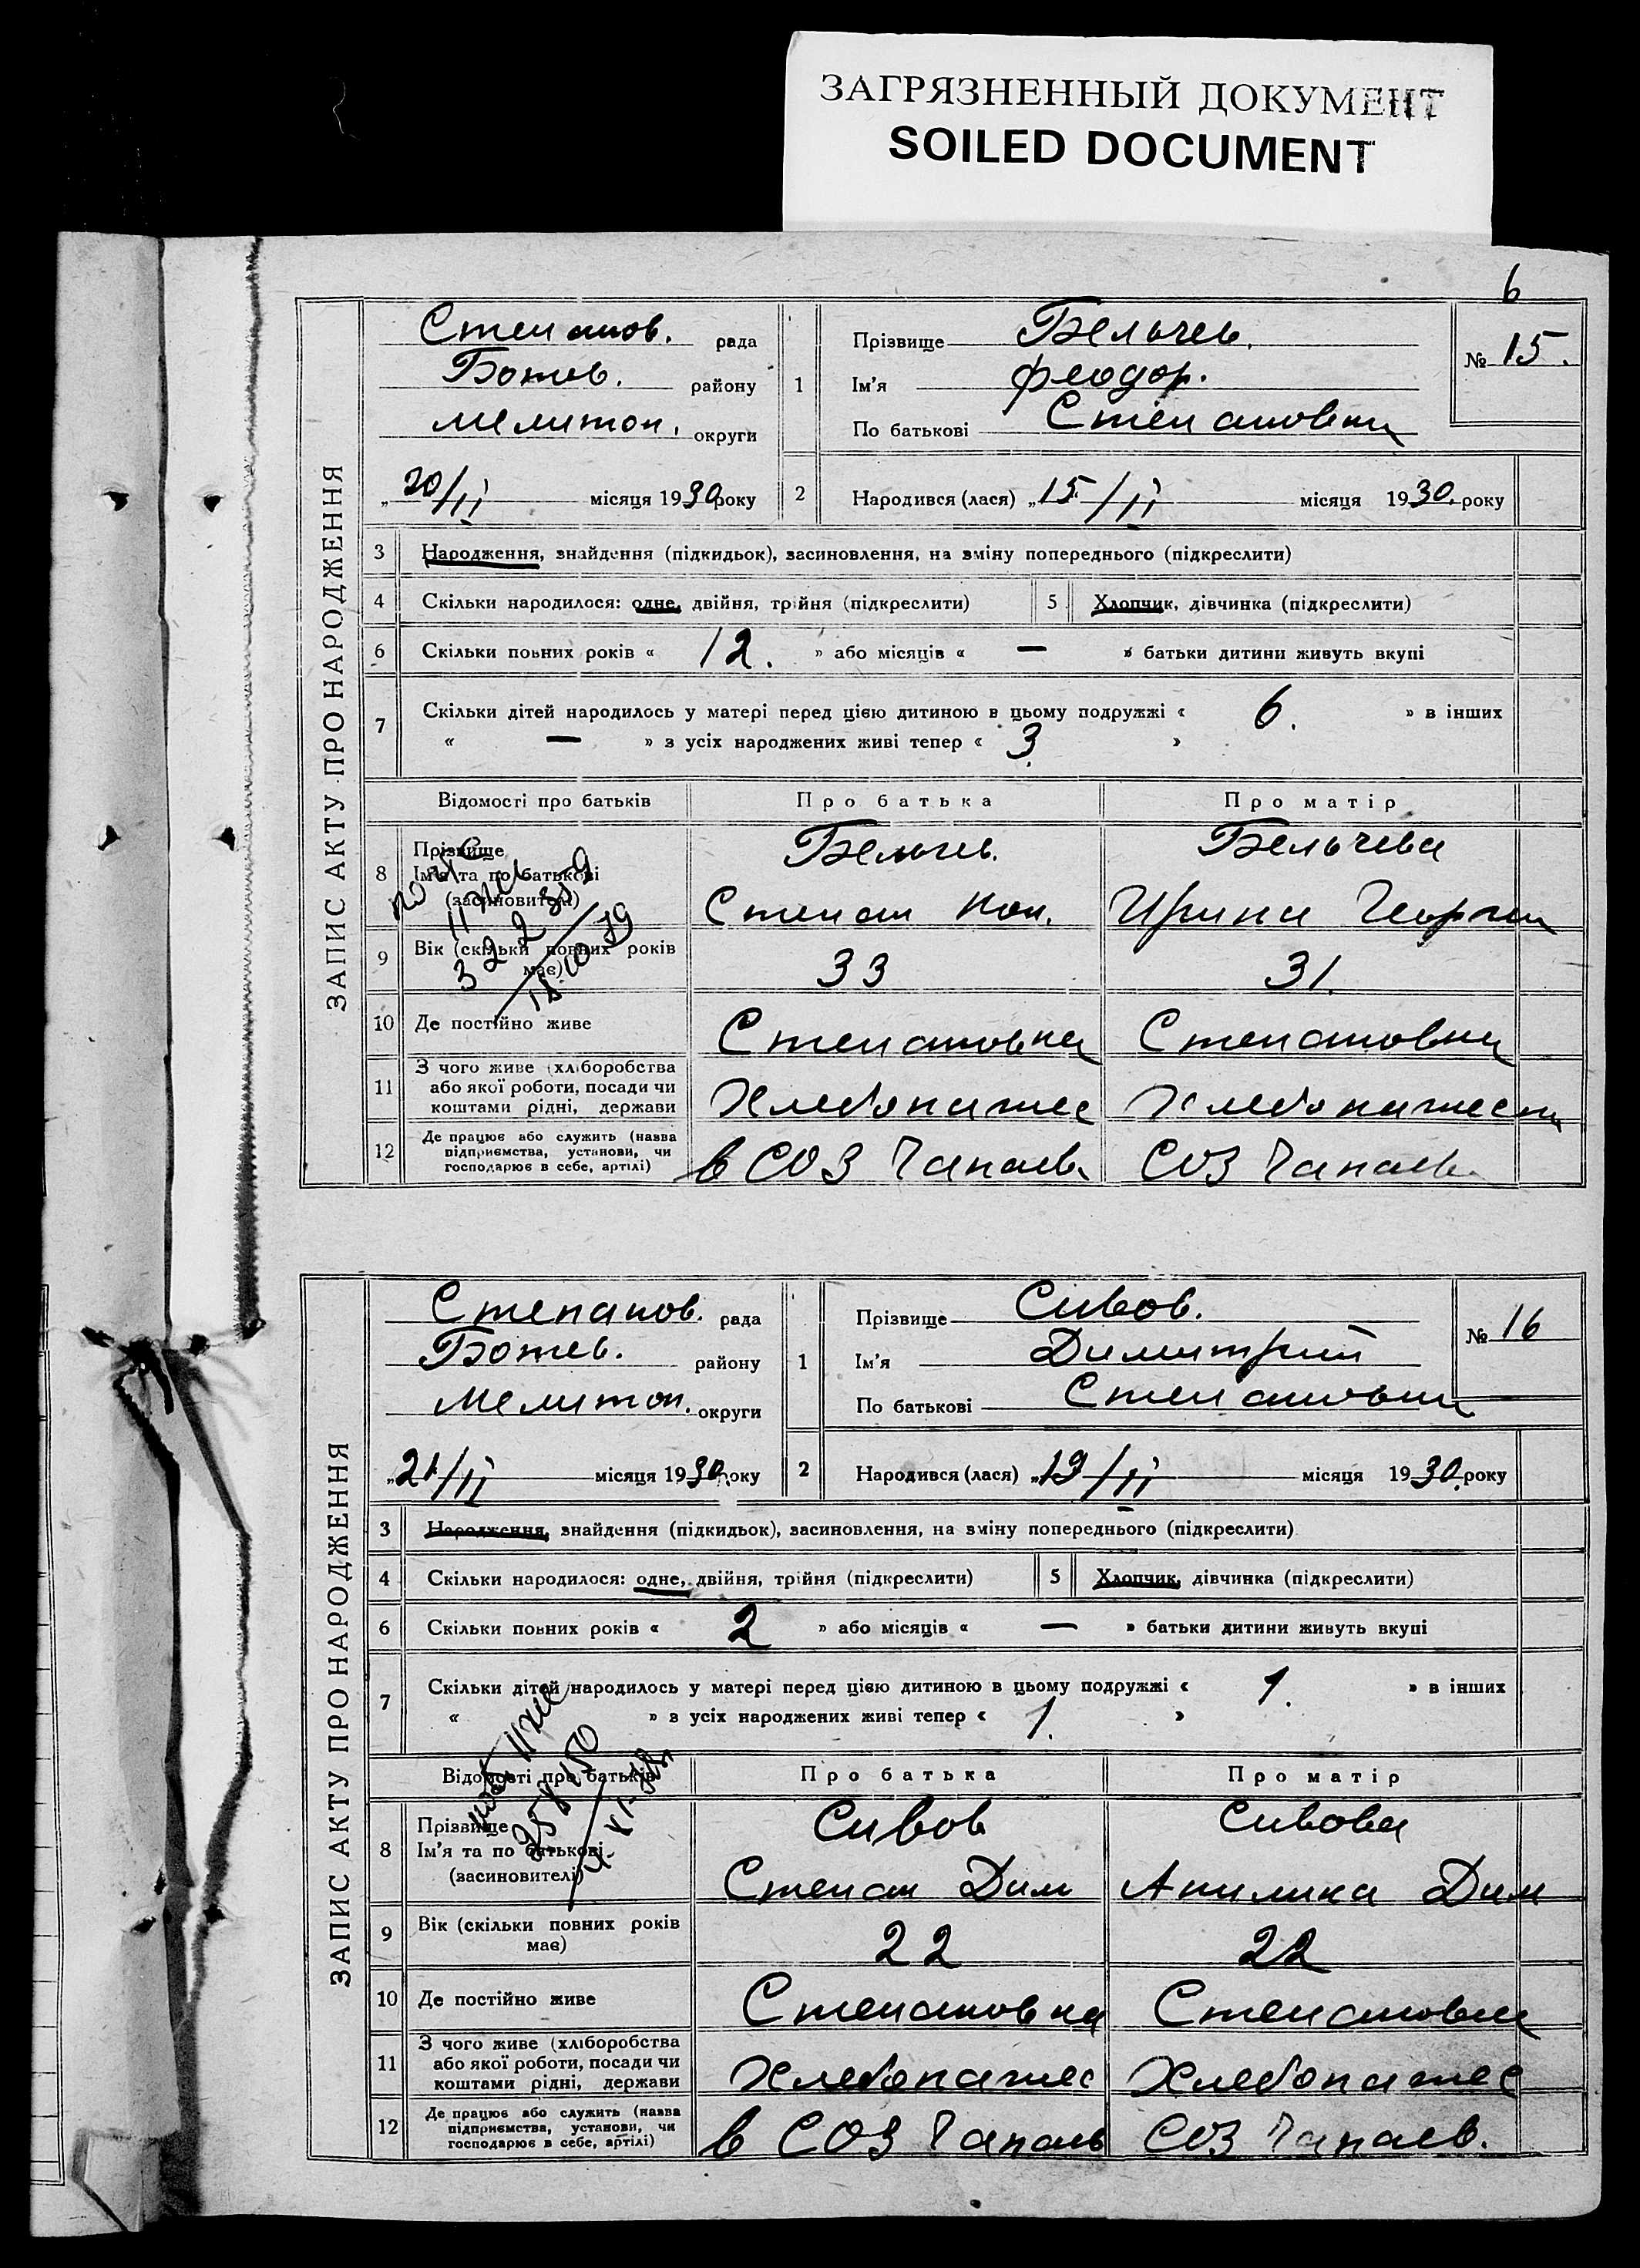 ЗАГРЯЗНЕННЫЙ ДОКУМЕНТ
SOILED DOCUMENT
6
ЗАПИС АКТУ ПРО НАРОДЖЕННЯ
Степанов. рада
Ботев. району
Мелитоп. округи
„20/II місяця 1930 року
1
Прізвище Бельчев.
Ім'я Феодор.
По батькові Степанович
№ 15.
2 Народився (лася) „15/II місяця 1930. року
3 Народження, знайдення (підкидьок), засиновлення, на зміну попереднього (підкреслити)
4 Скільки народилося: одне, двійня, трійня (підкреслити) 5 Хлопчик, дівчинка (підкреслити)
6 Скільки повних років « 12. » або місяців « — » батьки дитини живуть вкупі
7 Скільки дітей народилось у матері перед цією дитиною в цьому подружжі « 6. » в інших
« — » з усіх народжених живі тепер « 3. »
Відомості про батьків Про батька Про матір
8 Прізвище
Ім'я та по батькові
(засиновителі)
Бельчев. Бельчева
Степан Ирина Георгии
9 Вік (скільки повних років має) 33 31.
10 Де постійно живе Степановка Степановка
11 З чого живе (хліборобства
або якої роботи, посади чи
коштами рідні, держави
Хлебопашес Хлебопашеств
12 Де працює або служить (назва
підприємства, установи, чи
господарює в себе, артілі)
в СОЗ Чапаев СОЗ Чапаев
ЗАПИС АКТУ ПРО НАРОДЖЕННЯ
Степанов. рада
Ботев. району
Мелитоп. округи
„21/II місяця 1930 року
1
Прізвище Сивов.
Ім'я Димитрий
По батькові Степанович
№ 16
2 Народився (лася) „19/II місяця 1930. року
3 Народження, знайдення (підкидьок), засиновлення, на зміну попереднього (підкреслити)
4 Скільки народилося: одне, двійня, трійня (підкреслити) 5 Хлопчик, дівчинка (підкреслити)
6 Скільки повних років « 2 » або місяців « — » батьки дитини живуть вкупі
7 Скільки дітей народилось у матері перед цією дитиною в цьому подружжі « 1. » в інших
« » з усіх народжених живі тепер « 1. »
Відомості про батьків Про батька Про матір
8 Прізвище
Ім'я та по батькові
(засиновителі)
Сивов Сивова
Степан Дим Анилика Дим
9 Вік (скільки повних років має) 22 22
10 Де постійно живе Степановка Степановка
11 З чого живе (хліборобства
або якої роботи, посади чи
коштами рідні, держави
Хлебопашес Хлебопашес
12 Де працює або служить (назва
підприємства, установи, чи
господарює в себе, артілі)
в СОЗ Чапаев СОЗ Чапаев.